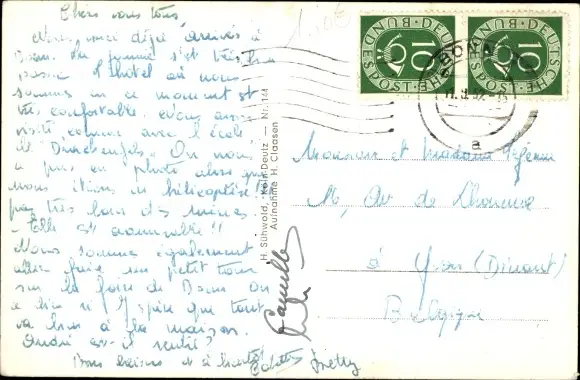 Chers vous tous
Nous voici déjà arrivés à
Bonn. La journée s'est très bien
passée. L'hôtel où nous
sommes en ce moment est
très confortable. Nous avons
visité comme avec l'école
le Drachenfels. On nous
a pris en photo alors que
nous étions en hélicoptère!
pas très loin des ruines.
- Elle est admirable!!
Nous sommes également
allés faire un petit tour
sur la foire de Bonn. On
a bien ri. J'espère que tout
va bien à la maison.
André est-il rentré?
Bons baisers et à bientôt
H. Sühwold, Köln-Deutz — Nr. 144
Aufnahme H. Claasen
DEUTSCHE BUNDESPOST
10
DEUTSCHE BUNDESPOST
10
BONN
a
Monsieur et Madame
Av de
à Yvoir (Dinant)
Belgique